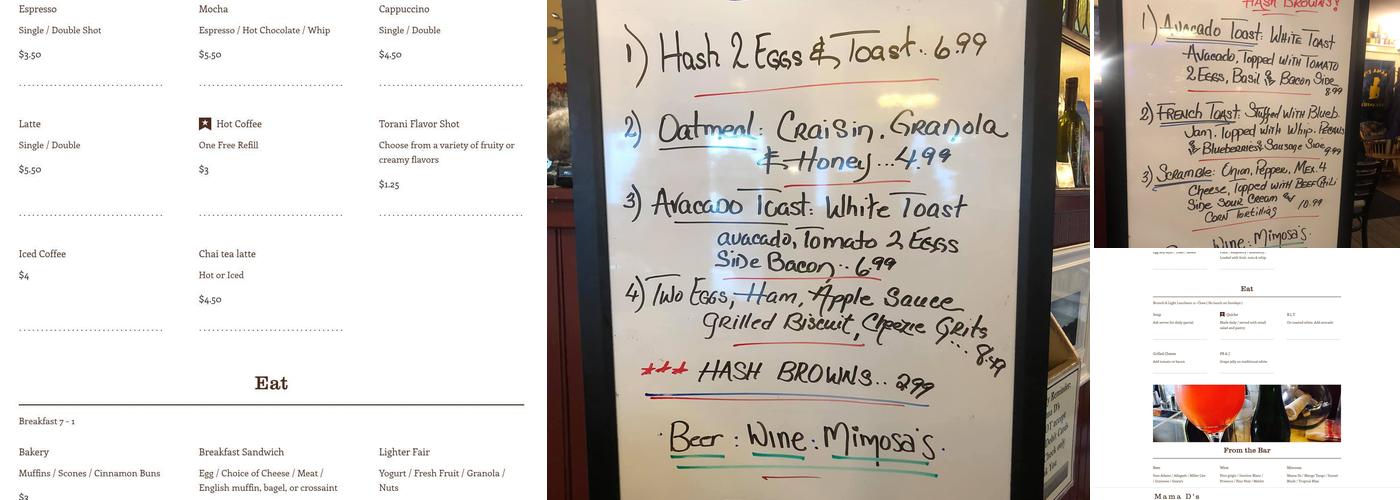 Espresso
Single / Double Shot
$3.50
Mocha
Espresso / Hot Chocolate / Whip
$5.50
Cappuccino
Single / Double
$4.50
Latte
Single / Double
$5.50
Hot Coffee
One Free Refill
$3
Torani Flavor Shot
Choose from a variety of fruity or
creamy flavors
$1.25
Iced Coffee
$4
Chai tea latte
Hot or Iced
$4.50
Eat
Breakfast 7 - 1
Bakery
Muffins / Scones / Cinnamon Buns
$3
Breakfast Sandwich
Egg / Choice of Cheese / Meat /
English muffin, bagel, or crossaint
Lighter Fair
Yogurt / Fresh Fruit / Granola /
Nuts
1) Hash 2 Eggs & Toast.. 6.99
2) Oatmeal: Craisin. Granola
& Honey ...4.99
3) Avacado Toast: White Toast
avacado, Tomato 2 Eggs
Side Bacon.. 6.99
4) Two Eggs, Ham, Apple Sauce
Grilled Biscuit, Cheezie Grits
... 8.49
*** HASH BROWNS.. 299
Beer : Wine : Mimosa's.
Reminder:
Debit Cards
Check only
HASH BROWNS!
1) Avacado Toast: White Toast
Avacado, Topped with Tomato
2 Eggs, Basil & Bacon Side
8.99
2) French Toast: Stuffed with Blueb.
Jam. Topped with Whip. Cream
& Blueberries & Sausage Side 9.99
3) Scramble: Onion, Pepper, Mex. 4
Cheese, Topped with Beef Chili
Side Sour Cream & 10.99
Corn Tortillas
Wine : Mimosa's
Eat
Soup
Ask server for daily special
Quiche
Made daily / served with small
salad and pastry
B.L.T
On toasted white. Add avocado
Grilled Cheese
Add tomato or bacon
PB & J
Grape jelly on traditional white
From the Bar
Beer
Wine
Mimosas
Mama D's